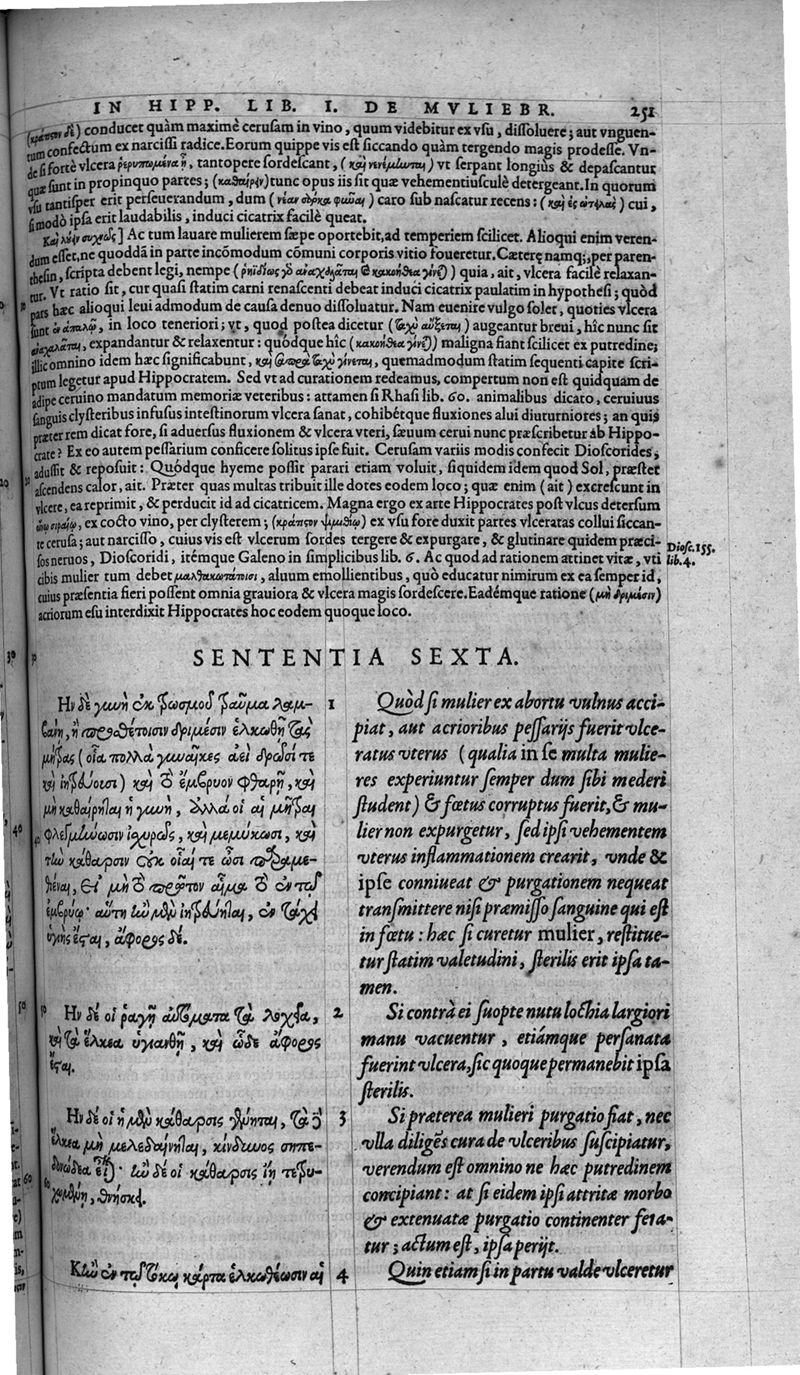 IN HIPP. LIB. I. DE MVLIEBR. 251
conducet quàm maximè cerusam in vino, quum videbitur ex vsu, dissoluere; aut vnguen-
tum confectum ex narcissi radice. Eorum quippe vis est siccando quàm tergendo magis prodesse. Vn-
de si fortè vlcera tantopere sordescant, vt serpant longiùs & depascantur
quæ sunt in propinquo partes; tunc opus iis sit quæ vehementiusculè detergeant. In quorum
vsu tantisper erit perseuerandum, dum caro sub nascatur recens: cui,
si modò ipsa erit laudabilis, induci cicatrix facilè queat.
] Ac tum lauare mulierem sæpe oportebit, ad temperiem scilicet. Alioqui enim veren-
dum esset, ne quoddã in parte incõmodum cõmuni corporis vitio foueretur. Cæterę namq;, per paren-
thesin, scripta debent legi, nempe quia, ait, vlcera facilè relaxan-
tur. Vt ratio sit, cur quasi statim carni renascenti debeat induci cicatrix paulatim in hypothesi; quòd
pars hæc alioqui leui admodum de causa denuo dissoluatur. Nam euenire vulgo solet, quoties vlcera
sunt in loco teneriori; vt, quod postea dicetur augeantur breui, hîc nunc sit
expandantur & relaxentur: quódque hîc maligna fiant scilicet ex putredine;
illic omnino idem hæc significabunt, quemadmodum statim sequenti capite scri-
ptum legetur apud Hippocratem. Sed vt ad curationem redeamus, compertum non est quidquam de
adipe ceruino mandatum memoriæ veteribus: attamen si Rhasi lib. 60. animalibus dicato, ceruiuus
sanguis clysteribus infusus intestinorum vlcera sanat, cohibétque fluxiones alui diuturniores; an quis
præter rem dicat fore, si aduersus fluxionem & vlcera vteri, sæuum cerui nunc præscribetur ab Hippo-
crate? Ex eo autem pessarium conficere solitus ipse fuit. Cerusam variis modis confecit Dioscorides,
adussit & reposuit: Quódque hyeme possit parari etiam voluit, siquidem idem quod Sol, præstet
ascendens calor, ait. Præter quas multas tribuit ille dotes eodem loco; quæ enim (ait) excrescunt in
vlcere, ea reprimit, & perducit id ad cicatricem. Magna ergo ex arte Hippocrates post vlcus detersum
ex cocto vino, per clysterem; ex vsu fore duxit partes vlceratas collui siccan-
te cerusa; aut narcisso, cuius vis est vlcerum sordes tergere & expurgare, & glutinare quidem præci-
sos neruos, Dioscoridi, itémque Galeno in simplicibus lib. 6. Ac quod ad rationem attinet vitæ, vti
Diosc. 155.
lib. 4.
cibis mulier tum debet μαλθακωτάτοισι, aluum emollientibus, quò educatur nimirum ex ea semper id,
cuius præsentia fieri possent omnia grauiora & vlcera magis sordescere. Eadémque ratione (μὴ δριμέσιν)
acriorum esu interdixit Hippocrates hoc eodem quoque loco.
SENTENTIA SEXTA.
Ην δὲ γυνὴ ἐκ τρωσμοῦ τρῶμα λαμ-
βάνῃ, ἢ προσθέτοισιν δριμέσιν ἑλκωθῇ τὰς
μήτρας (οἷα πολλὰ γυναῖκες ἀεὶ δρῶσί τε
καὶ ἰητρεύουσι) καὶ τὸ ἔμβρυον φθαρῇ, καὶ
μὴ καθαίρηται ἡ γυνὴ, ἀλλά οἱ αἱ μῆτραι
φλεγμήνωσιν ἰσχυρῶς, καὶ μεμύκωσι, καὶ
τὴν κάθαρσιν οὐκ οἷαί τε ὦσι παραμε-
θιέναι, εἰ μὴ τὸ πρῶτον αἷμα τὸ ἐν τῷ
ἐμβρύῳ· αὕτη ἢν μὲν ἰητρεύηται, ἐν τάχει
ὑγιὴς ἔσται, ἄφορος δέ.
1 Quòd si mulier ex abortu vulnus acci-
piat, aut acrioribus pessarijs fuerit vlce-
ratus vterus (qualia in se multa mulie-
res experiuntur semper dum sibi mederi
student) & fœtus corruptus fuerit, & mu-
lier non expurgetur, sed ipsi vehementem
vterus inflammationem crearit, vnde &
ipse conniueat & purgationem nequeat
transmittere nisi præmisso sanguine qui est
in fœtu: hæc si curetur mulier, restitue-
tur statim valetudini, sterilis erit ipsa ta-
men.
Ην δέ οἱ ῥαγῇ αὐτόματα τὰ λοχεῖα,
καὶ τὰ ἕλκεα ὑγιανθῇ, καὶ ὧδε ἄφορος
ἔσται.
2 Si contrà ei suopte nutu lochia largiori
manu vacuentur, etiámque persanata
fuerint vlcera, sic quoque permanebit ipsa
sterilis.
Ην δέ οἱ ἡ μὲν κάθαρσις γένηται, τὰ δ'
ἕλκεα μὴ μελεδαίνηται, κίνδυνος σηπε-
δονώδεα εἶναι· ἢν δέ οἱ κάθαρσις ἴῃ τετρυ-
χωμένῃ, θνήσκει.
3 Si præterea mulieri purgatio fiat, nec
vlla diligẽs cura de vlceribus suscipiatur,
verendum est omnino ne hæc putredinem
concipiant: at si eidem ipsi attritæ morbo
& extenuatæ purgatio continenter fera-
tur; actum est, ipsa perijt.
Κἢν ἐν τῷ τόκῳ κάρτα ἑλκωθέωσιν αἱ
4 Quin etiam si in partu valde vlceretur